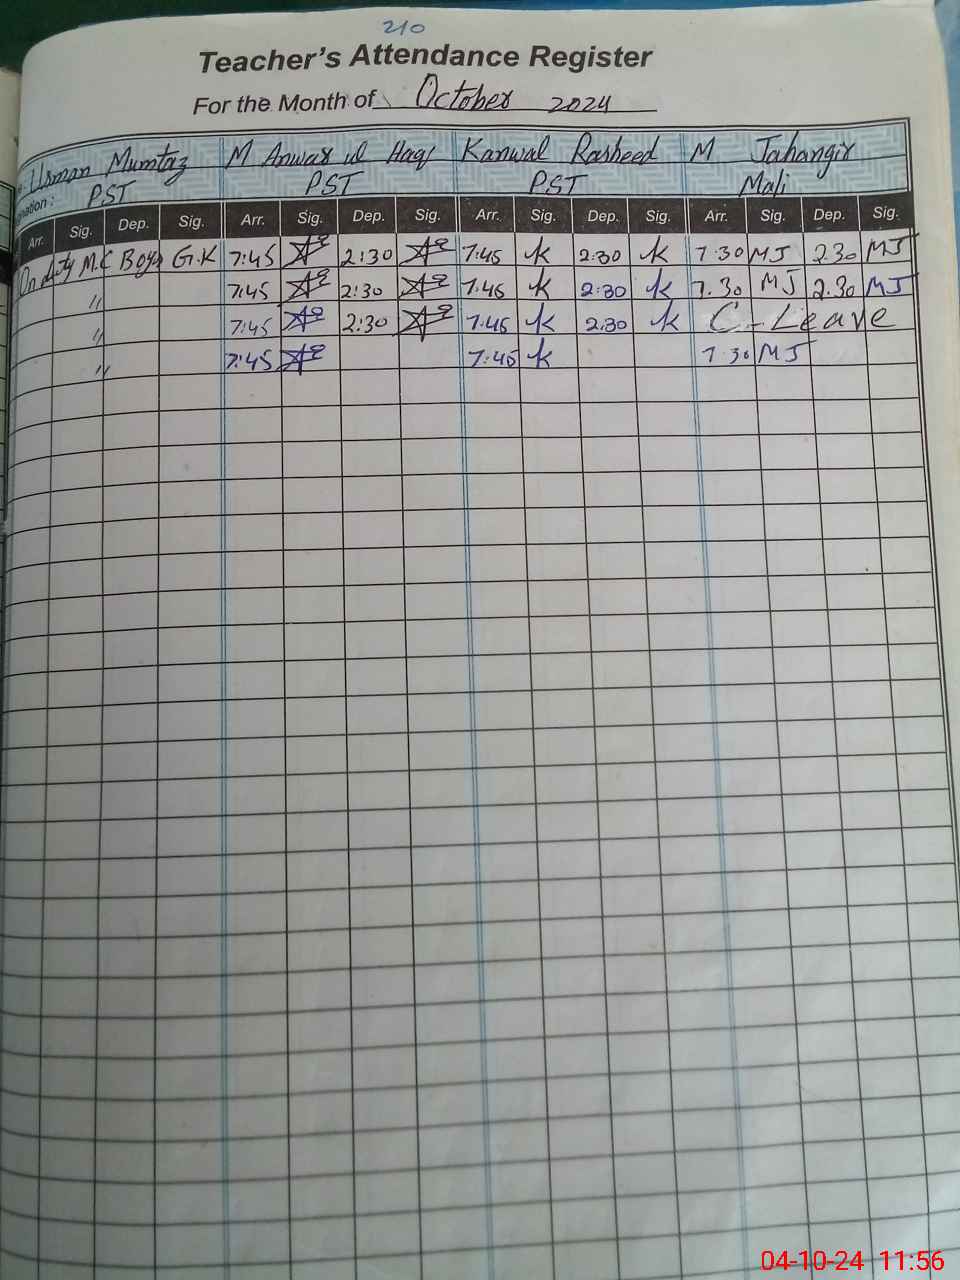 210
Teacher's Attendance Register
For the Month of October 2024
Usman Mumtaz M Anwar ul Haq Kanwal Rasheed M Jahangir
nation : PST PST PST Mali
Arr. Sig. Dep. Sig. Arr. Sig. Dep. Sig. Arr. Sig. Dep. Sig. Arr. Sig. Dep. Sig.
On duty M.C Boys G.K 7:45 2:30 7:45 K 2:30 K 7:30 MJ 2.30 MJ
" 7:45 2:30 7:45 K 2:30 K 7.30 MJ 2.30 MJ
" 7:45 2:30 7:45 K 2:30 K C-Leave
" 7:45 7:45 K 7 30 MJ
04-10-24 11:56